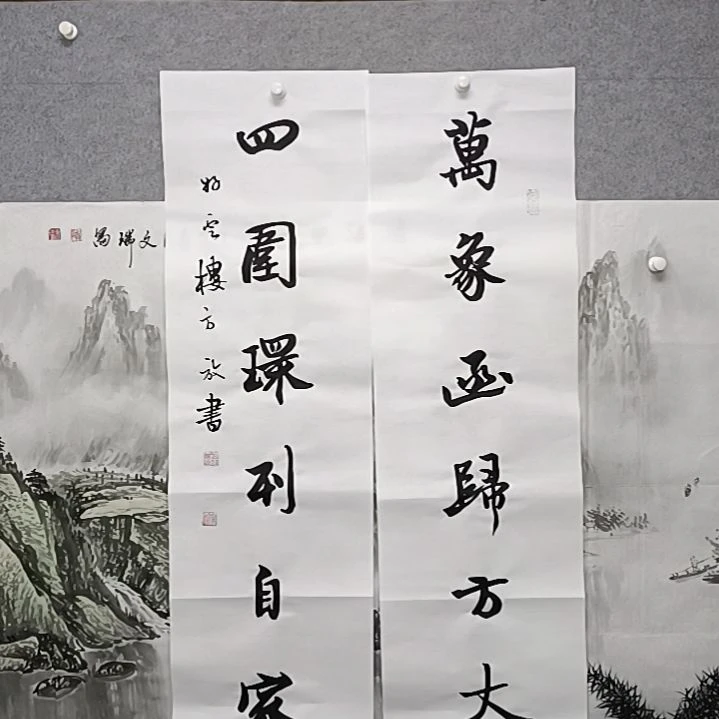 萬象函歸方大
四圍環列自家
樓方放書
文瑞